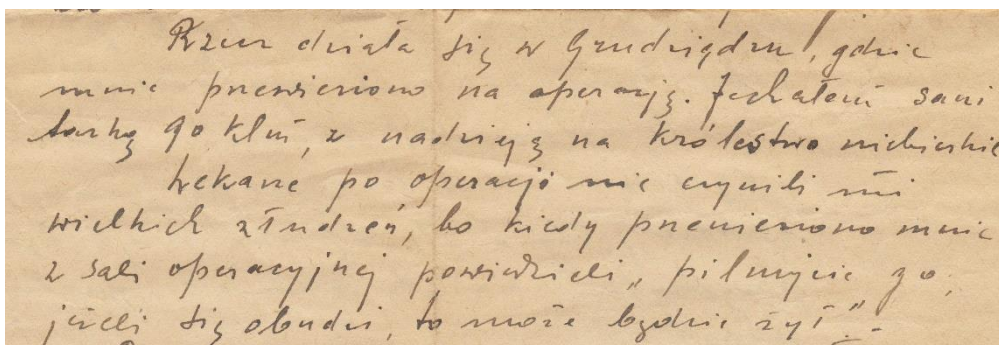 Rzecz działa się w Grudziądzu, gdzie
mnie przewieziono na operację. Jechałem sani
tarką 90 klm, z nadzieją na królestwo niebieskie
Lekarze po operacji nie czynili mi
wielkich złudzeń, bo kiedy przeniesiono mnie
z sali operacyjnej powiedzieli „pilnujcie go,
jeżeli się obudzi, to może będzie żył".-